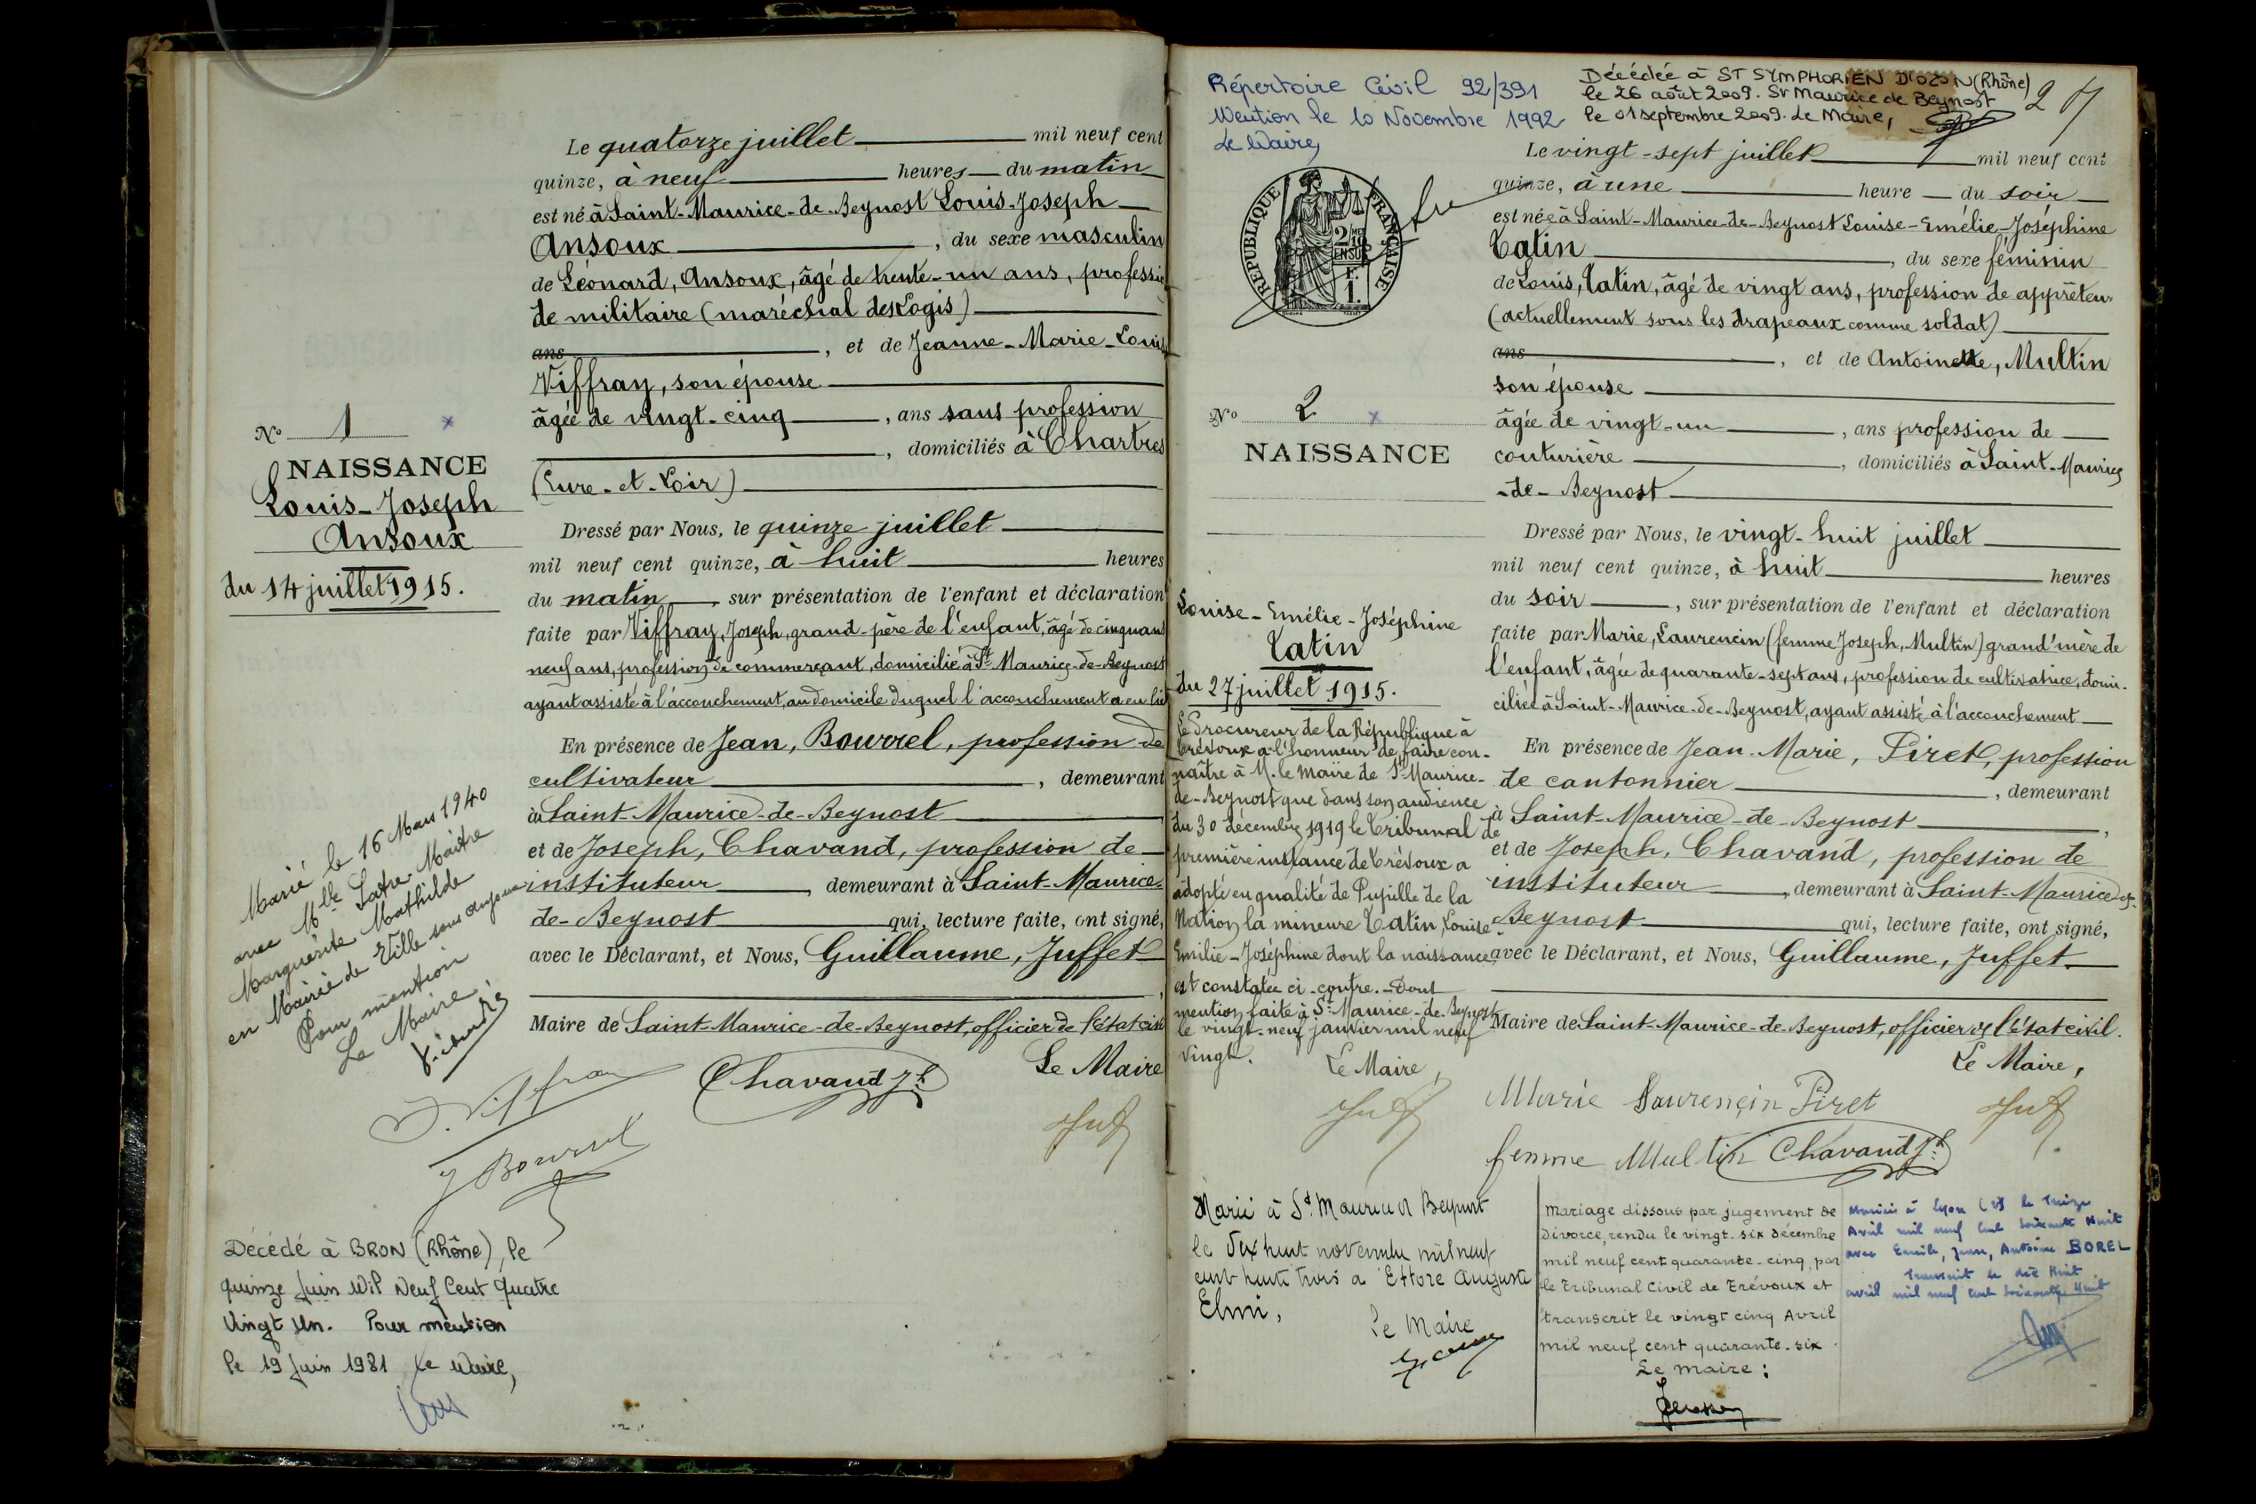 Le quatorze juillet mil neuf cent
quinze, à neuf heures du matin
est né à Saint-Maurice-de-Beynost Louis-Joseph
Ansoux, du sexe masculin
de Léonard, Ansoux, âgé de trente-un ans, profession
de militaire (maréchal des Logis)
ans, et de Jeanne-Marie-Louise
Viffray, son épouse
âgée de vingt-cinq, ans sans profession
, domiciliés à Chartres
(Eure-et-Loir)
Dressé par Nous, le quinze juillet
mil neuf cent quinze, à huit heures
du matin, sur présentation de l'enfant et déclaration
faite par Viffray, Joseph, grand-père de l'enfant, âgé de cinquante
neuf ans, profession de commerçant, domicilié à St Maurice-de-Beynost
ayant assisté à l'accouchement, au domicile duquel l'accouchement a eu lieu
En présence de Jean, Bourrel, profession de
cultivateur, demeurant
à Saint-Maurice-de-Beynost
et de Joseph, Chavand, profession de
instituteur, demeurant à Saint-Maurice-
de-Beynost qui, lecture faite, ont signé,
avec le Déclarant, et Nous, Guillaume, Juffet
,
Maire de Saint-Maurice-de-Beynost, officier de l'état civil
Le Maire
J. Viffray
Chavand Jh
J Bourrel
Juf
No 1 x
NAISSANCE
Louis-Joseph
Ansoux
du 14 juillet 1915.
Marié le 16 Mars 1940
avec Mlle Maitre
Marguerite Mathilde
en Mairie de Ville sous Anjou
Pour mention
Le Maire,
Décédé à BRON (Rhône), le
quinze Juin Mil Neuf Cent Quatre
Vingt Un. Pour mention
le 19 Juin 1981 Le Maire,
Répertoire Civil 92/391
Mention le 10 Novembre 1992
Le Maire,
Décédée à ST SYMPHORIEN D'OZON (Rhône)
le 26 août 2009. St Maurice de Beynost
le 01 septembre 2009. Le Maire,
2
REPUBLIQUE FRANCAISE
2/10
EN SUS
1 F.
Le vingt-sept juillet mil neuf cent
quinze, à une heure du soir
est née à Saint-Maurice-de-Beynost Louise-Emélie-Joséphine
Tatin, du sexe féminin
de Louis, Tatin, âgé de vingt ans, profession de apprêteur
(actuellement sous les drapeaux comme soldat)
ans, et de Antoinette, Multin
son épouse
âgée de vingt-un, ans profession de
couturière, domiciliés à Saint-Maurice
-de-Beynost
Dressé par Nous, le vingt-huit juillet
mil neuf cent quinze, à huit heures
du soir, sur présentation de l'enfant et déclaration
faite par Marie, Laurencin (femme Joseph, Multin) grand'mère de
l'enfant, âgée de quarante-sept ans, profession de cultivatrice, domi-
ciliée à Saint-Maurice-de-Beynost, ayant assisté à l'accouchement
En présence de Jean-Marie, Piret, profession
de cantonnier, demeurant
à Saint-Maurice-de-Beynost,
et de Joseph, Chavand, profession de
instituteur, demeurant à Saint-Maurice-de-
Beynost qui, lecture faite, ont signé,
avec le Déclarant, et Nous, Guillaume, Juffet
Maire de Saint-Maurice-de-Beynost, officier de l'état civil.
Le Maire,
Marie Laurençin Piret
femme Multin Chavand Jh
Juf
No 2 x
NAISSANCE
Louise-Emélie-Joséphine
Tatin
du 27 juillet 1915.
Le Procureur de la République à
Trévoux a l'honneur de faire con-
naître à M. le maire de St Maurice-
de-Beynost que dans son audience
du 30 décembre 1919 le Tribunal de
première instance de Trévoux a
adopté en qualité de Pupille de la
Nation la mineure Tatin, Louise-
Emilie-Joséphine dont la naissance
est constatée ci-contre. - Dont
mention faite à St-Maurice-de-Beynost
le vingt-neuf janvier mil neuf
vingt.
Le Maire,
Juf
Marié à St Maurice de Beynost
le dix huit novembre mil neuf
cent trente trois à Ettore Auguste
Elmi,
Le Maire
Mariage dissous par jugement de
divorce, rendu le vingt-six décembre
mil neuf cent quarante-cinq, par
le Tribunal Civil de Trévoux et
transcrit le vingt cinq Avril
mil neuf cent quarante-six.
Le maire :
Mariée à Lyon le treize
Avril mil neuf cent soixante huit
avec Emile, Jean, Antoine BOREL
Transcrit le dix huit
avril mil neuf cent soixante huit